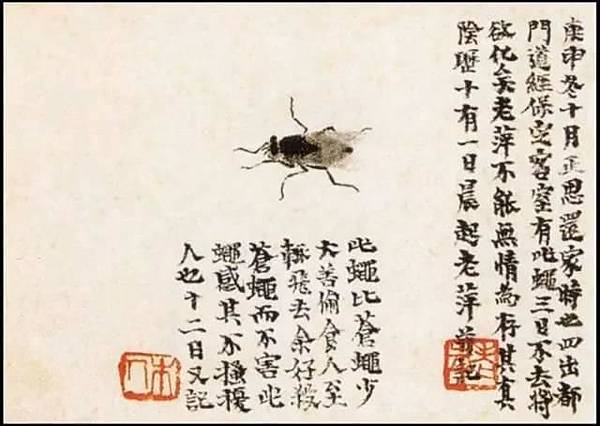 庚申冬十月正思還家時也四出都
門道經保定客室有此蠅三日不去將
欲化矣老萍不能無情為存其真
陰曆十有一日晨起老萍並記
此蠅比蒼蠅少
大善偷食人至
輒飛去余好殺
蒼蠅而不害此
蠅感其不搔擾
人也十二日又記
木人